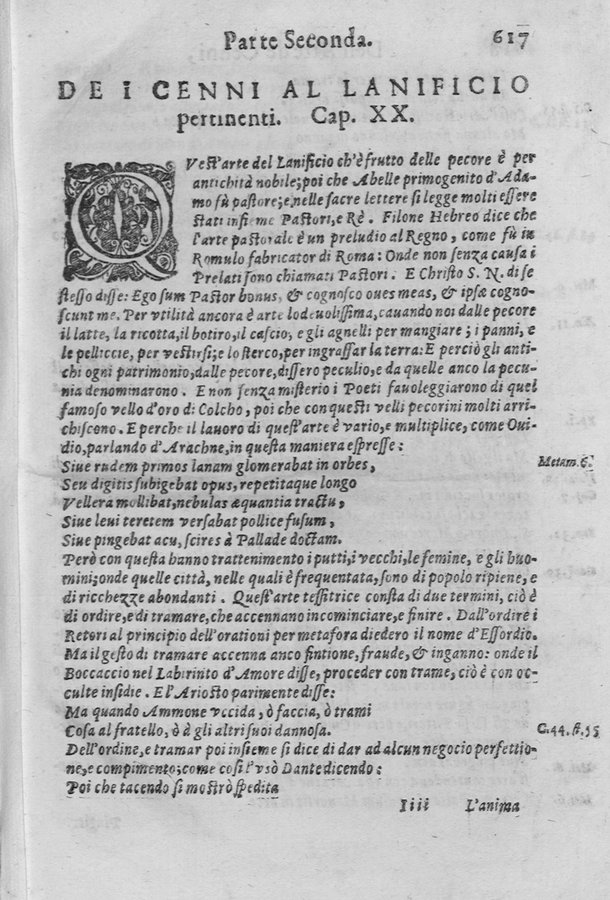 Parte Seconda. 617
DE I CENNI AL LANIFICIO
pertinenti. Cap. XX.
QVest'arte del Lanificio ch'è frutto delle pecore è per
antichità nobile; poi che Abelle primogenito d'Ada-
mo fù pastore; e, nelle sacre lettere si legge molti essere
stati insieme Pastori, e Rè. Filone Hebreo dice che
l'arte pastorale è un preludio al Regno, come fù in
Romulo fabricator di Roma: Onde non senza causa i
Prelati sono chiamati Pastori. E Christo S. N. di se
stesso disse: Ego sum Pastor bonus, & cognosco oues meas, & ipsæ cogno-
scunt me. Per vtilità ancora è arte lodeuolissima, cauando noi dalle pecore
il latte, la ricotta, il botiro, il cascio, e gli agnelli per mangiare; i panni, e
le pelliccie, per vestirsi; e lo sterco, per ingrassar la terra: E perciò gli anti-
chi ogni patrimonio, dalle pecore, dissero peculio, e da quelle anco la pecu-
nia denominarono. E non senza misterio i Poeti fauoleggiarono di quel
famoso vello d'oro di Colcho, poi che con questi velli pecorini molti arri-
chiscono. E perche il lauoro di quest'arte è vario, e multiplice, come Oui-
dio, parlando d'Arachne, in questa maniera espresse:
Siue rudem primos lanam glomerabat in orbes, Metam. 6.
Seu digitis subigebat opus, repetitaque longo
Vellera mollibat, nebulas æquantia tractu,
Siue leui teretem versabat pollice fusum,
Siue pingebat acu, scires à Pallade doctam.
Però con questa hanno trattenimento i putti, i vecchi, le femine, e gli huo-
mini; onde quelle città, nelle quali è frequentata, sono di popolo ripiene, e
di ricchezze abondanti. Quest'arte tessitrice consta di due termini, ciò è
di ordire, e di tramare, che accennano incominciare, e finire. Dall'ordire i
Retori al principio dell'orationi per metafora diedero il nome d'Essordio.
Ma il gesto di tramare accenna anco fintione, fraude, & inganno: onde il
Boccaccio nel Labirinto d'Amore disse, proceder con trame, ciò è con oc-
culte insidie. E l'Ariosto parimente disse:
Ma quando Ammone vccida, ò faccia, ò trami
Cosa al fratello, ò à gli altri suoi dannosa. C. 44. st. 55
Dell'ordine, e tramar poi insieme si dice di dar ad alcun negocio perfettio-
ne, e compimento; come così l'vsò Dante dicendo:
Poi che tacendo si mostrò spedita
Iiii L'anima